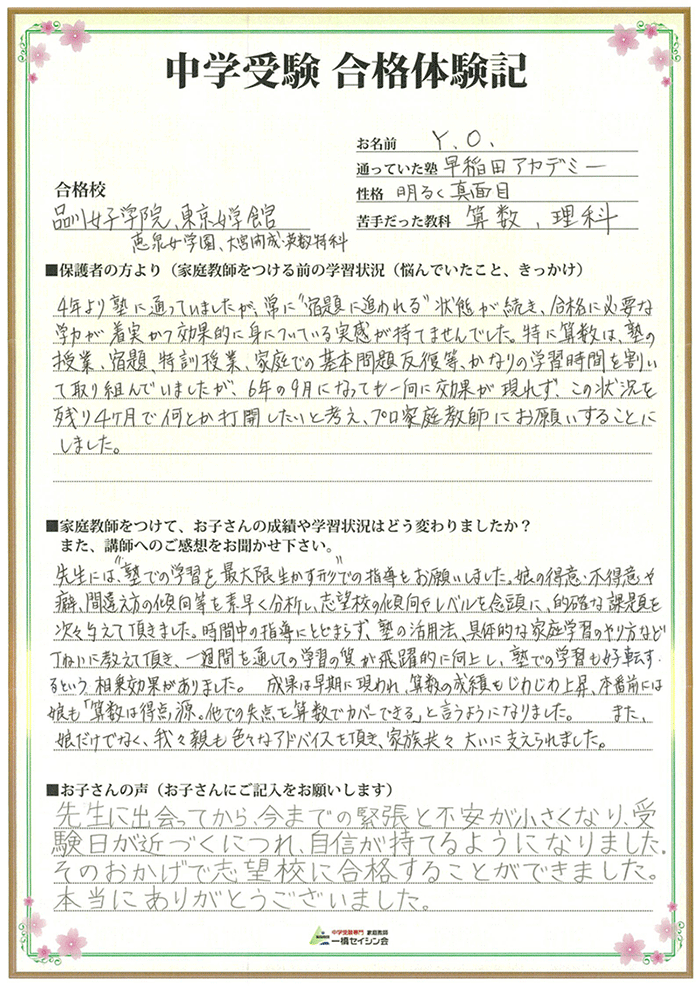 中学受験 合格体験記
お名前 Y.O.
通っていた塾 早稲田アカデミー
性格 明るく真面目
苦手だった教科 算数、理科
合格校
品川女子学院、東京女学館
恵泉女学園、大宮開成・英数特科
■保護者の方より（家庭教師をつける前の学習状況（悩んでいたこと、きっかけ）
4年より塾に通っていましたが、常に"宿題に追われる"状態が続き、合格に必要な
学力が着実かつ効果的に身についている実感が持てませんでした。特に算数は、塾の
授業、宿題、特訓授業、家庭での基本問題反復等、かなりの学習時間を割い
て取り組んでいましたが、6年の9月になっても一向に効果が現れず、この状況を
残り4ヶ月で何とか打開したいと考え、プロ家庭教師にお願いすることに
しました。
■家庭教師をつけて、お子さんの成績や学習状況はどう変わりましたか？
また、講師へのご感想をお聞かせ下さい。
先生には、"塾での学習を最大限生かす形"での指導をお願いしました。娘の得意・不得意や
癖、間違え方の傾向等を素早く分析し、志望校の傾向やレベルを念頭に、的確な課題を
次々与えて頂きました。時間中の指導にとどまらず、塾の活用法、具体的な家庭学習のやり方など
丁ねいに教えて頂き、一週間を通しての学習の質が飛躍的に向上し、塾での学習も好転す
るという、相乗効果がありました。 成果は早期に現われ、算数の成績もじわじわ上昇、本番前には
娘も「算数は得点源。他での失点を算数でカバーできる」と言うようになりました。 また、
娘だけでなく、我々親も色々なアドバイスを頂き、家族共々大いに支えられました。
■お子さんの声（お子さんにご記入をお願いします）
先生に出会ってから、今までの緊張と不安が小さくなり、受
験日が近づくにつれ、自信が持てるようになりました。
そのおかげで志望校に合格することができました。
本当にありがとうございました。
中学受験専門 家庭教師
一橋セイシン会